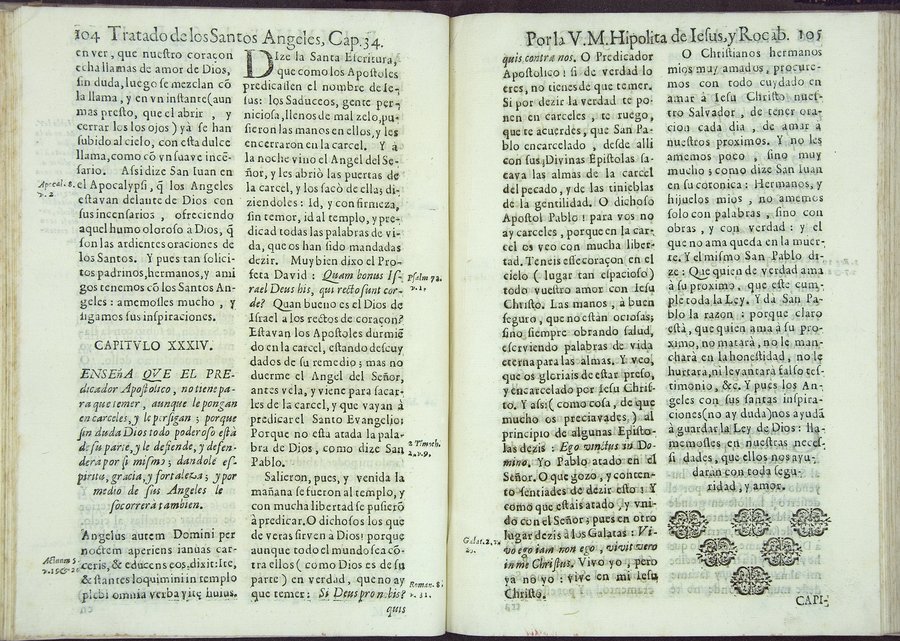 104 Tratado de los Santos Angeles, Cap. 34.
en ver, que nuestro coraçon
echa llamas de amor de Dios,
sin duda, luego se mezclan cõ
la llama, y en vn instante (aun
mas presto, que el abrir, y
cerrar los ojos) yà se han
subido al cielo, con esta dulce
llama, como cõ vn suave ince̅-
sario. Assi dize San Iuan en
Apocal. 8.
v. 2.
el Apocalypsi, q̃ los Angeles
estavan delante de Dios con
sus incensarios, ofreciendo
aquel humo oloroso à Dios, q̃
son las ardientes oraciones de
los Santos. Y pues tan solici-
tos padrinos, hermanos, y ami
gos tenemos cõ los Santos An-
geles: amemosles mucho, y
sigamos sus inspiraciones.
CAPITVLO XXXIV.
ENSEñA QVE EL PRE-
dicador Apostolico, no tiene pa-
ra que temer, aunque le pongan
en carceles, y le persigan; porque
sin duda Dios todo poderoso està
de su parte, y le defiende, y defen-
dera por si mismo; dandole es-
piritu, gracia, y fortaleza; y por
medio de sus Angeles le
socorrerà tambien.
Angelus autem Domini per
noctem aperiens ianuas car-
Actuum 5
v. 19 & 20
ceris, & educens eos, dixit: Ite,
& stantes loquimini in templo
plebi omnia verba vitę huius.
DIze la Santa Escritura,
que como los Apostoles
predicassen el nombre de Ie-
sus: los Saduceos, gente per-
niciosa, llenos de mal zelo, pu-
sieron las manos en ellos, y les
encerraron en la carcel. Y à
la noche vino el Angel del Se-
ñor, y les abriò las puertas de
la carcel, y los sacò de ella; di-
ziendoles: Id, y con firmeza,
sin temor, id al templo, y pre-
dicad todas las palabras de vi-
da, que os han sido mandadas
dezir. Muy bien dixo el Pro-
feta David: Quam bonus Is-
Psalm 72.
v. 1.
rael Deus his, qui recto sunt cor-
de? Quan bueno es el Dios de
Israel a los rectos de coraçon?
Estavan los Apostoles durmiē
do en la carcel, estando descuy
dados de su remedio; mas no
duerme el Angel del Señor,
antes vela, y viene para sacar-
les de la carcel, y que vayan à
predicar el Santo Evangelio:
Porque no està atada la pala-
2 Timoth.
2. v. 9.
bra de Dios, como dize San
Pablo.
Salieron, pues, y venida la
mañana se fueron al templo, y
con mucha libertad se pusierõ
à predicar. O dichosos los que
de veras sirven a Dios! porque
aunque todo el mundo sea cõ-
tra ellos (como Dios es de su
parte) en verdad, que no ay
Roman. 8.
v. 31.
que temer: Si Deus pro nobis?
quis
Por la V. M. Hipolita de Iesus, y Rocab. 105
quis contra nos. O Predicador
Apostolico: si de verdad lo
eres, no tienes de que temer.
Si por dezir la verdad te po-
nen en carceles, te ruego,
que te acuerdes, que San Pa-
blo encarcelado, desde alli
con sus Divinas Epistolas sa-
cava las almas de la carcel
del pecado, y de las tinieblas
de la gentilidad. O dichoso
Apostol Pablo! para vos no
ay carceles, porque en la car-
cel os veo con mucha liber-
tad. Teneis esse coraçon en el
cielo (lugar tan espacioso)
todo vuestro amor con Iesu
Christo. Las manos, à buen
seguro, que no están ociosas;
sino siempre obrando salud,
escriviendo palabras de vida
eterna para las almas. Y veo,
que os gloriais de estar preso,
y encarcelado por Iesu Chris-
to. Y assi (como cosa, de que
mucho os preciavades) al
principio de algunas Episto-
las dezis: Ego vinctus in Do-
mino. Yo Pablo atado en el
Señor. O que gozo, y conten-
to sentiades de dezir esto: Y
como que estais atado, y vni-
do con el Señor; pues en otro
lugar dezis à los Galatas: Vi-
Galat. 2. v.
20.
vo ego iam non ego, vivit vero
in me Christus. Vivo yo, pero
ya no yo: vive en mi Iesu
Christo.
O Christianos hermanos
mios muy amados, procure-
mos con todo cuydado en
amar à Iesu Christo nues-
tro Salvador, de tener ora-
cion cada dia, de amar à
nuestros proximos. Y no les
amemos poco, sino muy
mucho; como dize San Iuan
en su coronica: Hermanos, y
hijuelos mios, no amemos
solo con palabras, sino con
obras, y con verdad: y el
que no ama queda en la muer-
te. Y el mismo San Pablo di-
ze: Que quien de verdad ama
à su proximo, que este cum-
ple toda la Ley. Y da San Pa-
blo la razon; porque claro
està, que quien ama à su pro-
ximo, no matarà, no le man-
charà en la honestidad, no le
hurtara, ni levantarà falso tes-
timonio, &c. Y pues los An-
geles con sus santas inspira-
ciones (no ay duda) nos ayudã
à guardar la Ley de Dios: lla-
memosles en nuestras neces-
si dades, que ellos nos ayu-
daràn con toda segu-
ridad, y amor.
CAPI-